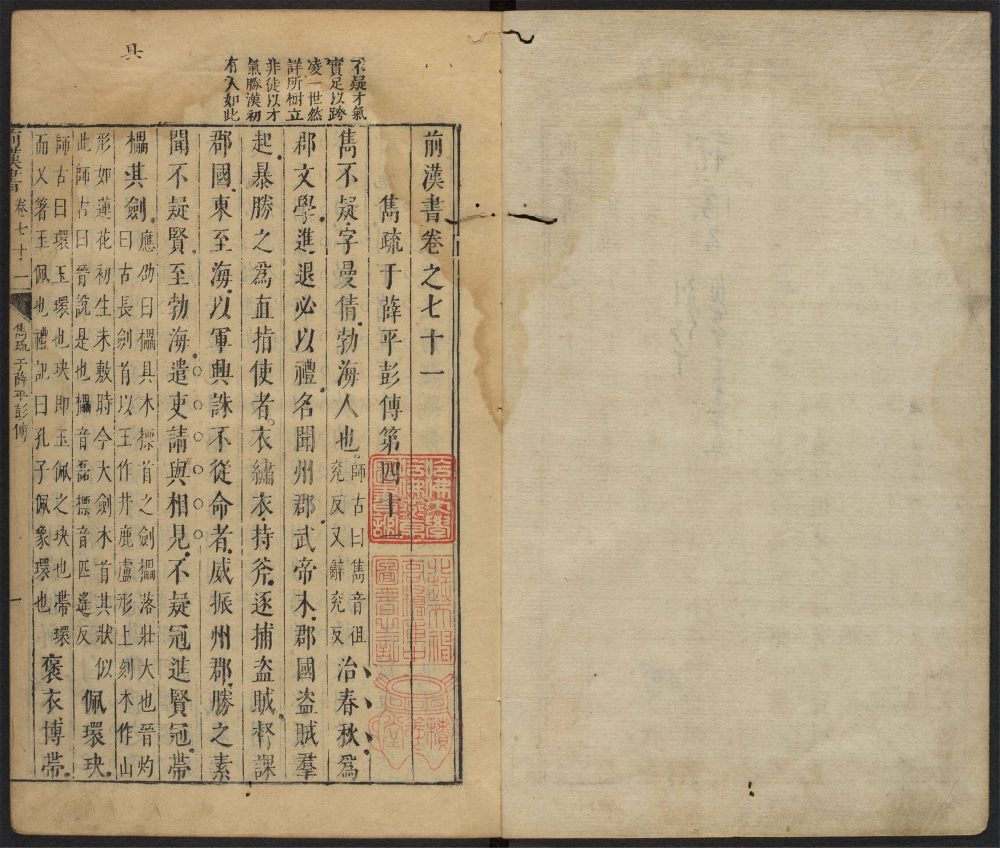 具
不疑才氣
實足以跨
凌一世然
詳所樹立
非徒以才
氣勝漢初
有人如此
前漢書卷之七十一
雋疏于薛平彭傳第四十一
雋不疑字曼倩勃海人也師古曰雋音徂兗反又辭兗反治春秋爲
郡文學進退必以禮名聞州郡武帝末郡國盜賊羣
起暴勝之爲直指使者衣繡衣持斧逐捕盜賊督課
郡國東至海以軍興誅不從命者威振州郡勝之素
聞不疑賢至勃海遣吏請與相見不疑冠進賢冠帶
櫑具劍應劭曰櫑具木摽首之劍櫑落壯大也晉灼曰古長劍首以玉作井鹿盧形上刻木作山
形如蓮花初生未敷時今大劍木首其狀似此師古曰晉說是也櫑音磊摽音匹遙反佩環玦
師古曰環玉環也玦即玉佩之玦也帶環而又著玉佩也禮記曰孔子佩象環也襃衣博帶
前漢書 卷七十一 雋疏于薛平彭傳 一